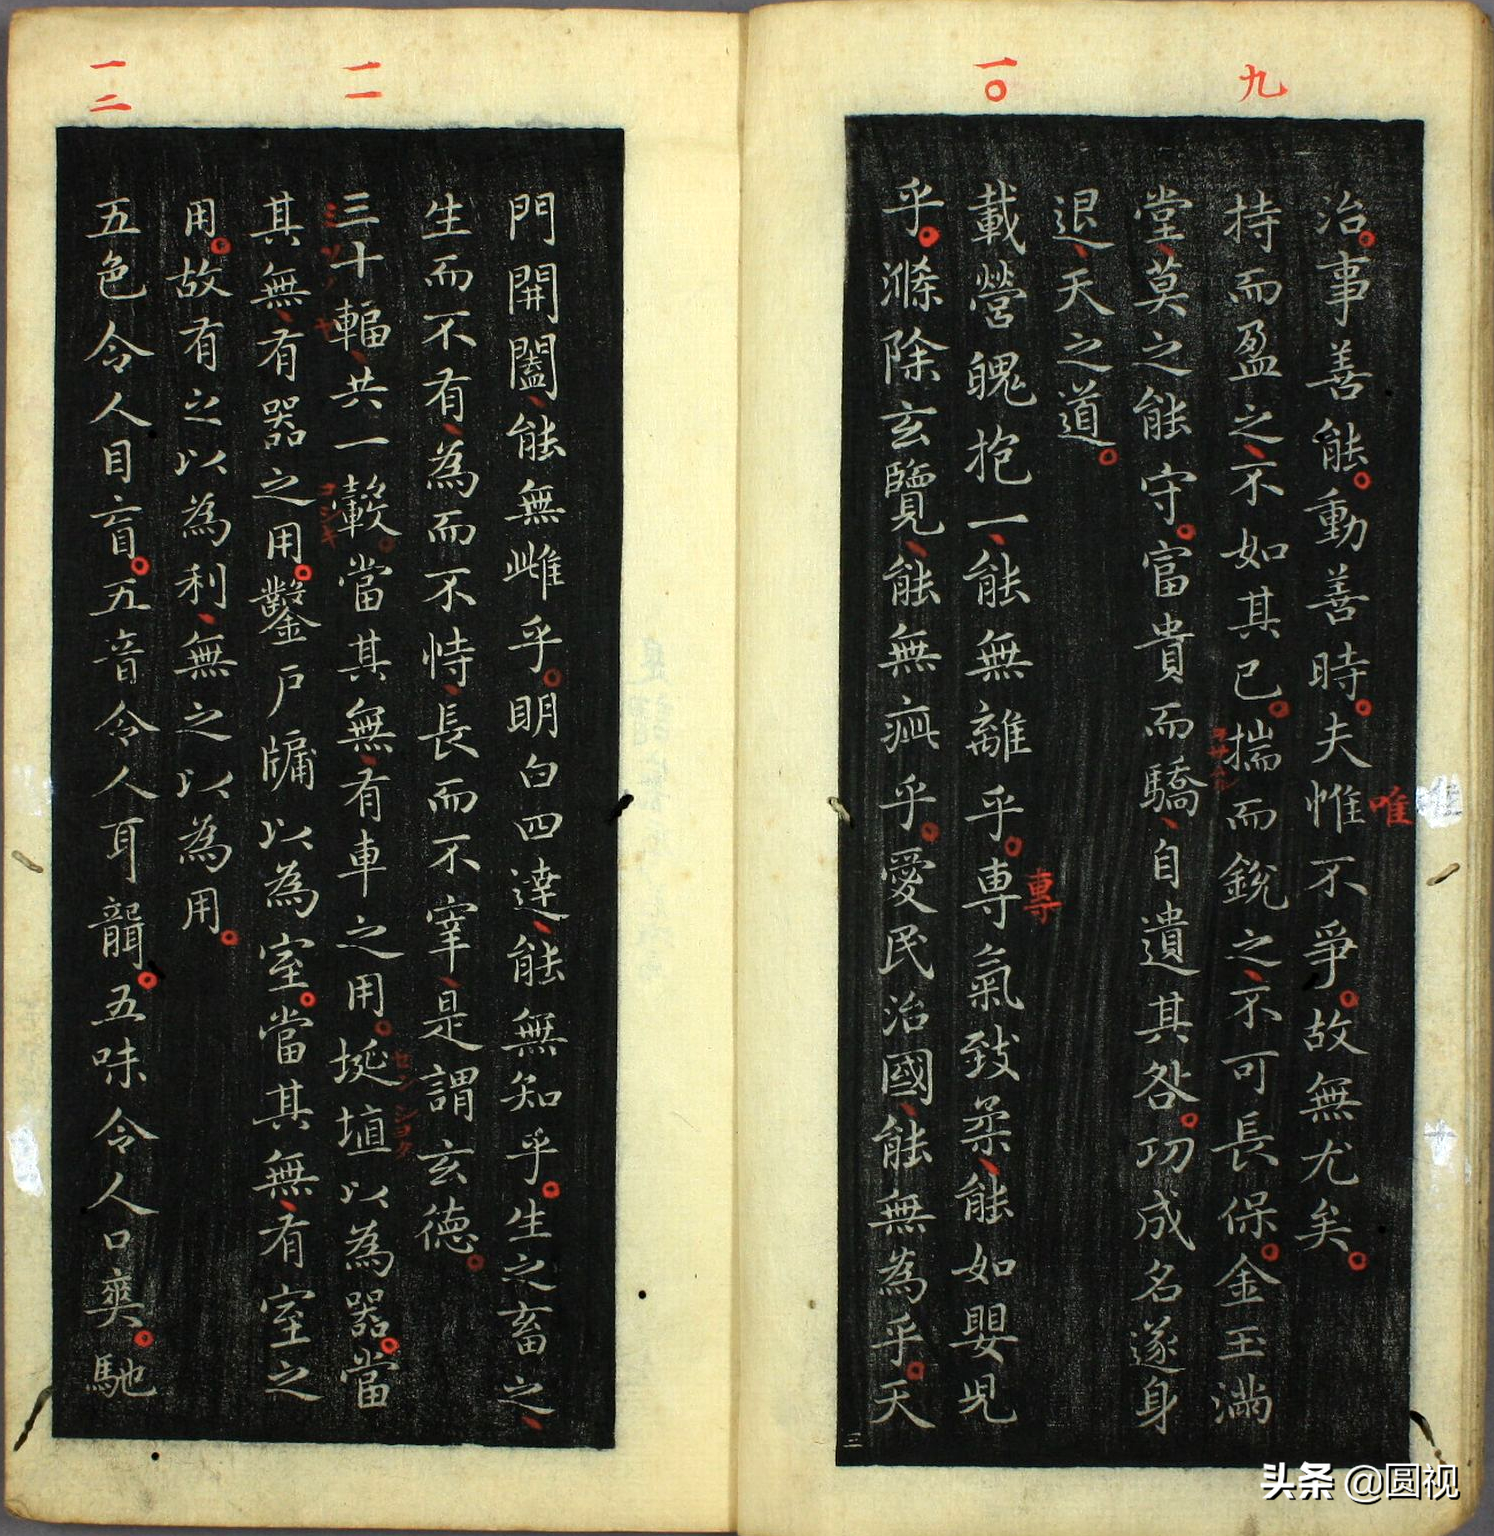 九
一〇
治事善能動善時夫惟不爭故無尤矣
唯
持而盈之不如其已揣而銳之不可長保金玉滿
堂莫之能守富貴而驕自遺其咎功成名遂身
退天之道
載營魄抱一能無離乎專氣致柔能如嬰兒
專
乎滌除玄覽能無疵乎愛民治國能無為乎天
三
一一
一二
門開闔能無雌乎明白四達能無知乎生之畜之
生而不有為而不恃長而不宰是謂玄德
三十輻共一轂當其無有車之用埏埴以為器當
ミソノヤ
コシキ
セン ショク
其無有器之用鑿戶牖以為室當其無有室之
用故有之以為利無之以為用
五色令人目盲五音令人耳聾五味令人口爽馳
头条 @圆视